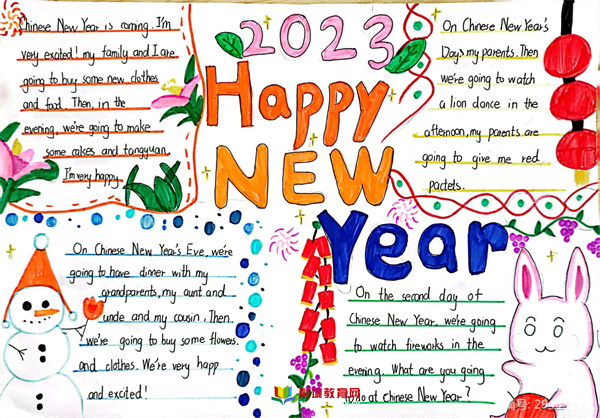 2023
Happy
NEW
Year
Chinese New Year is coming. I'm
very excited! my family and I are
going to buy some new clothes
and food. Then, in the
evening, we're going to make
some cakes and tangyuan.
I'm very happy
On Chinese New Year's
Day, my parents. Then
we're going to watch
a lion dance in the
afternoon, my parents are
going to give me red
packets.
On Chinese New Year's Eve, we're
going to have dinner with my
grandparents, my aunt and
uncle and my cousin. Then
we're going to buy some flowers.
and clothes. We're very happ
and excited!
On the second day of
Chinese New Year, we're going
to watch fireworks in the
evening. What are you going
to do at Chinese New Year?
教育网
号: 29